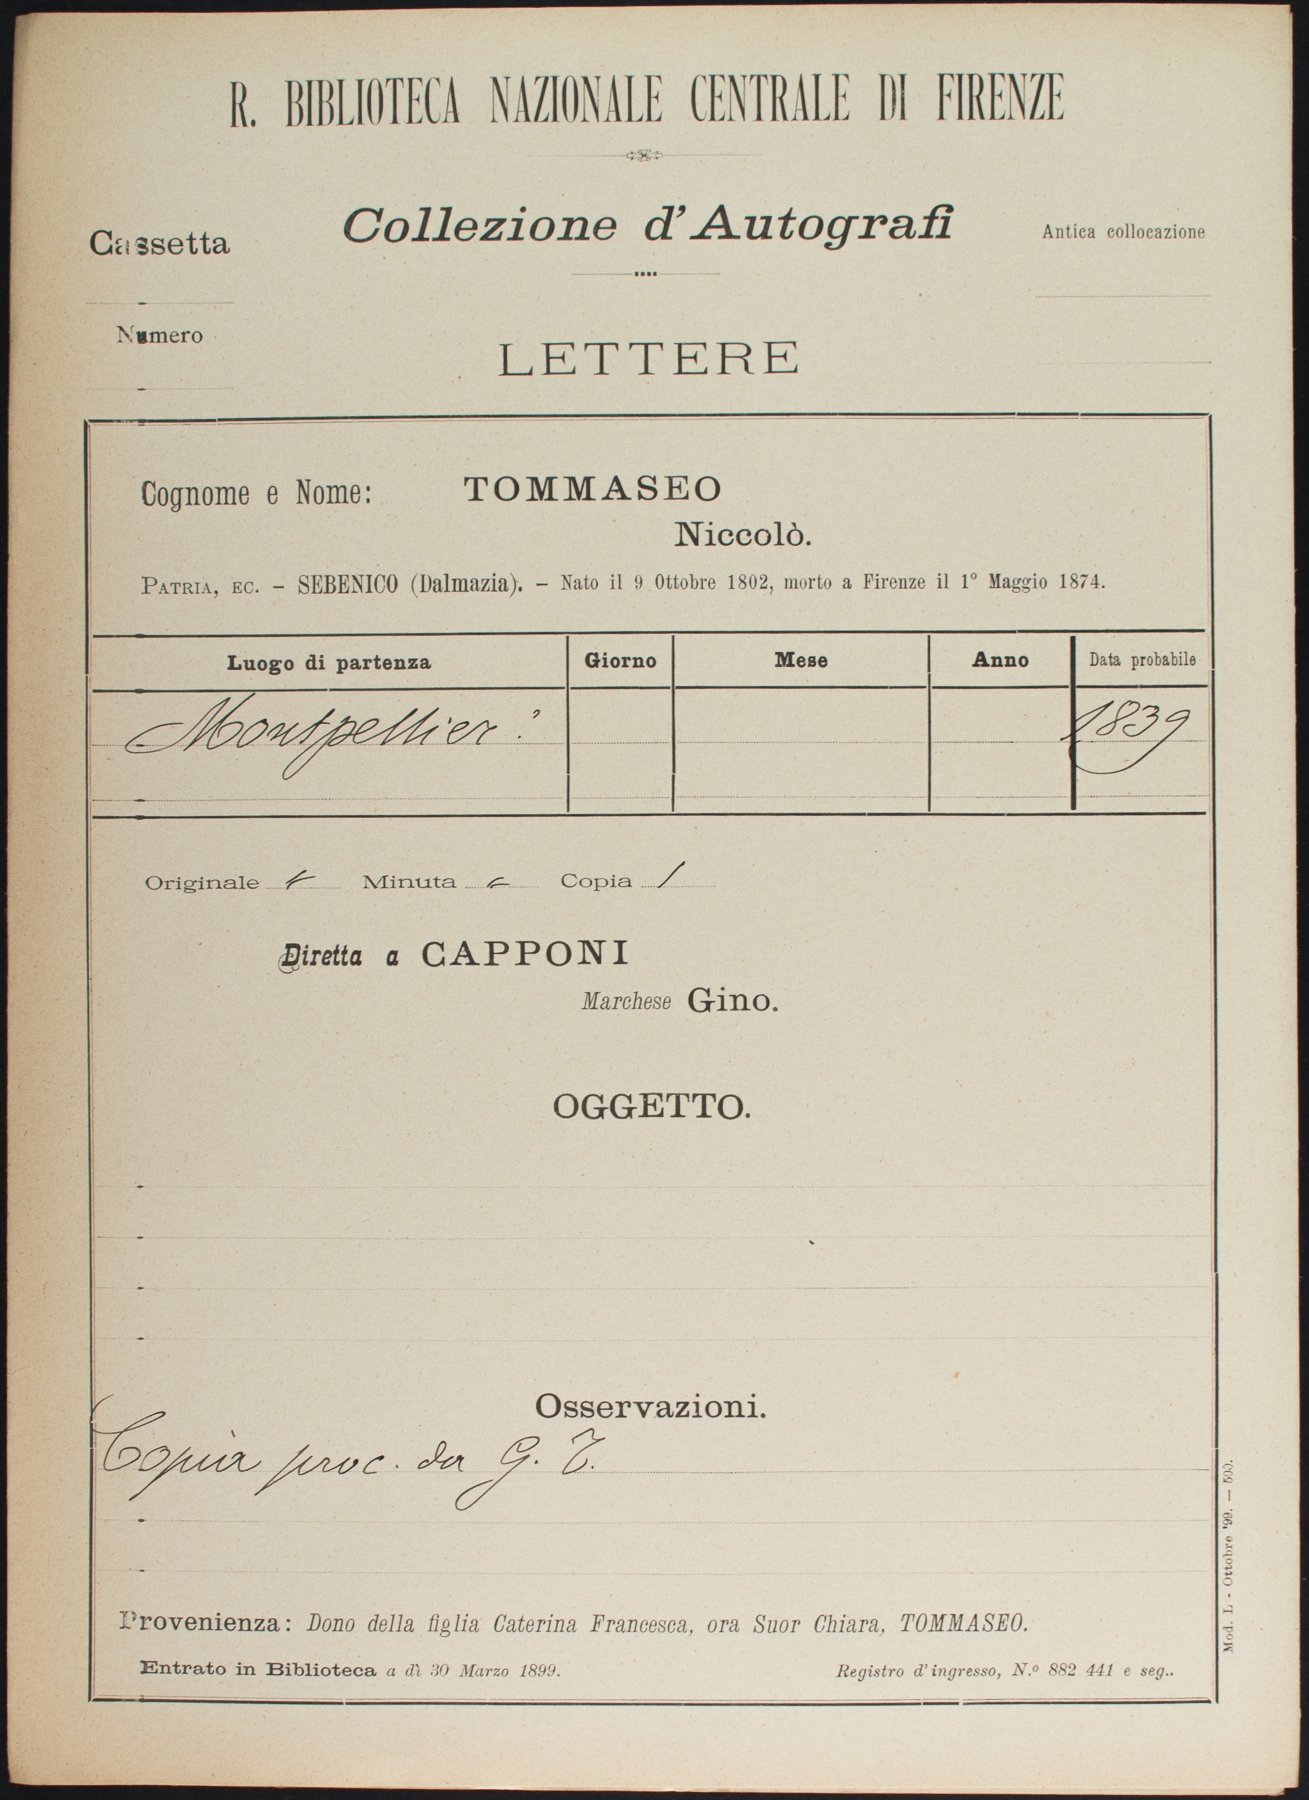 R. BIBLIOTECA NAZIONALE CENTRALE DI FIRENZE
Collezione d'Autografi
Cassetta
Antica collocazione
Numero
LETTERE
Cognome e Nome: TOMMASEO
Niccolò.
PATRIA, EC. – SEBENICO (Dalmazia). – Nato il 9 Ottobre 1802, morto a Firenze il 1° Maggio 1874.
Luogo di partenza Giorno Mese Anno Data probabile
Montpellier? 1839
Originale Minuta Copia 1
Diretta a CAPPONI
Marchese Gino.
OGGETTO.
Osservazioni.
Copia proc. da G. T.
Provenienza: Dono della figlia Caterina Francesca, ora Suor Chiara, TOMMASEO.
Entrato in Biblioteca a dì 30 Marzo 1899. Registro d'ingresso, N.o 882 441 e seg..
Mod. L - Ottobre '99. — 500.